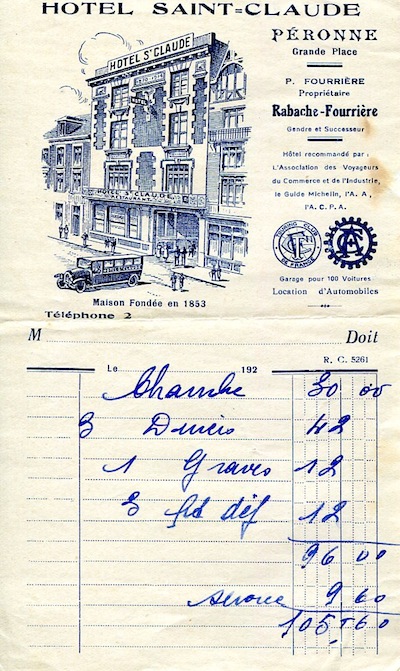 HOTEL SAINT=CLAUDE
PÉRONNE
Grande Place
P. FOURRIÈRE
Propriétaire
Rabache-Fourrière
Gendre et Successeur
Hôtel recommandé par :
L'Association des Voyageurs
du Commerce et de l'Industrie,
le Guide Michelin, l'A. A,
l'A. C. P. A.
HOTEL St CLAUDE
HOTEL St CLAUDE
RESTAURANT
Garage pour 100 Voitures
Location d'Automobiles
Maison Fondée en 1853
Téléphone 2
M Doit
R. C. 5261
Le 192
Chambre 30 00
3 Diners 42
1 Graves 12
3 pt déf 12
96 00
Service 9 60
105 60